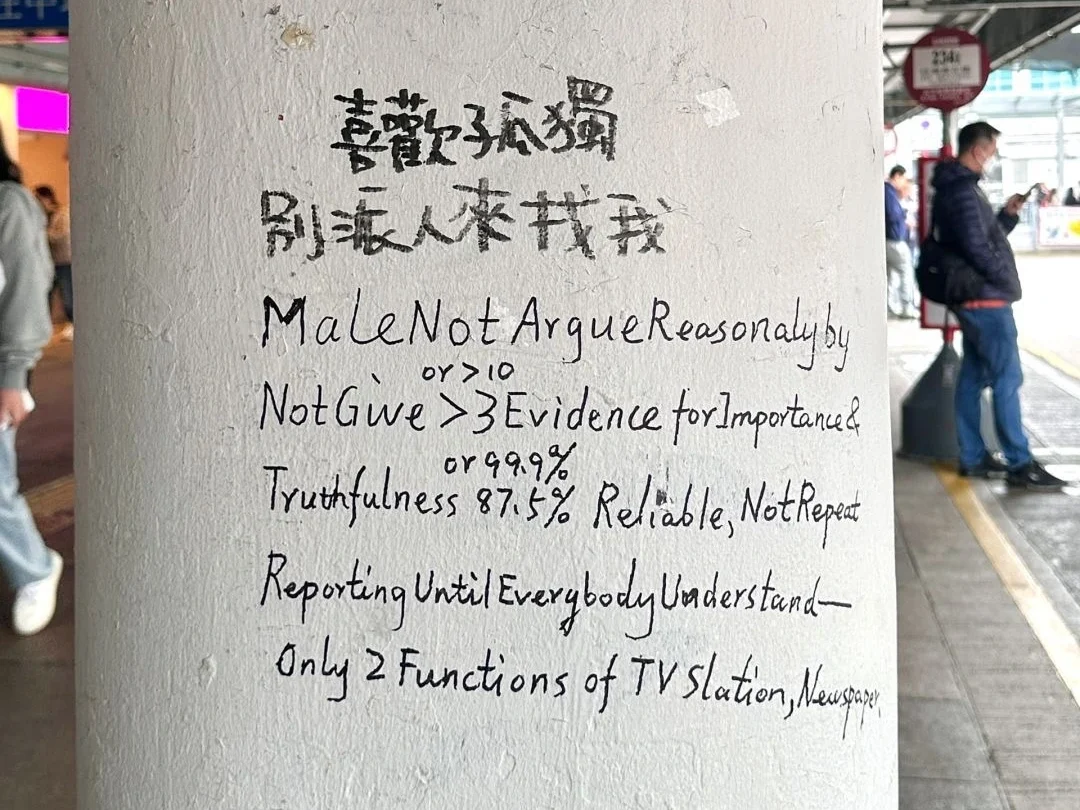 喜歡孤獨
別派人來找我
MaleNotArgueReasonalyby
or >10
NotGive >3 Evidence forImportance&
or 99.9%
Truthfulness 87.5% Reliable, NotRepeat
Reporting Until Everybody Understand—
Only 2 Functions of TV Slation, Newspaper,
234X